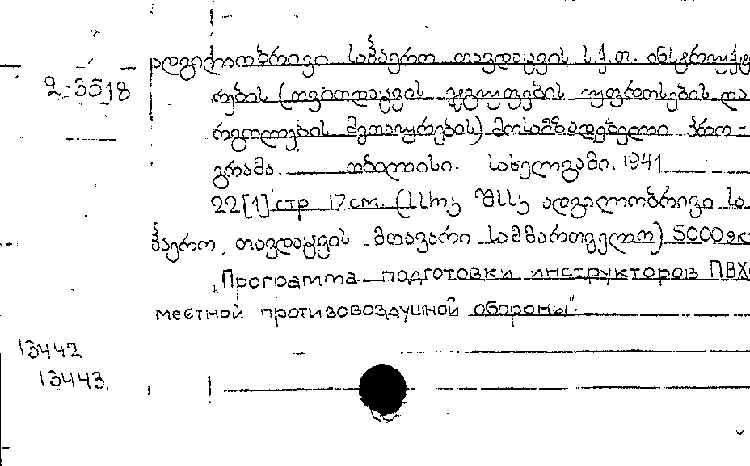 ადგილობრივი საჰაერო თავდაცვის ს.ქ.თ. ინსტრუქტ
2-5518
რების (თვითდაცვის ჯგუფების უფროსების და
რგოლების მეთაურების) მოსამზადებელი პრო-
გრამა. თბილისი. სახელგამი, 1941
22[1] стр 17 см. (სსრკ შსსკ ადგილობრივი სა
ჰაერო თავდაცვის მთავარი სამმართველო) 5000 эк
„Программа подготовки инструкторов ПВХ
местной противовоздушной обороны“
13442
13443.